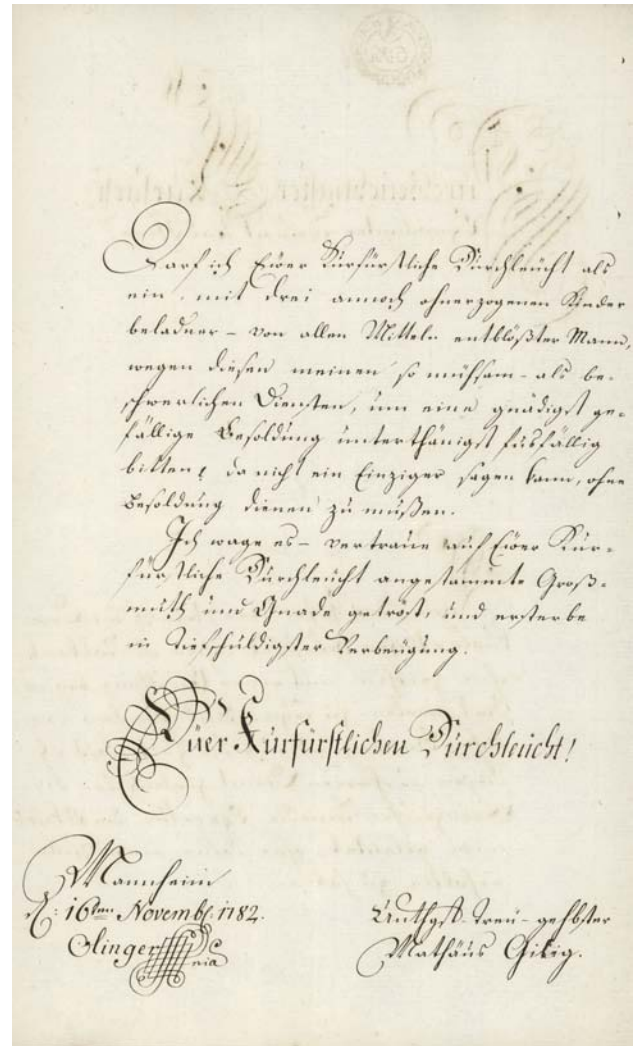 Darf ich Eüer Kurfürstliche Dürchleücht als
ein, mit drei annoch ohnerzogenen Kinder
beladner – von allen Mitteln entblößter Mann,
wegen diesen meinen so mühsam- als be-
schwerlichen Diensten, um eine gnädigst ge-
fällige Besoldung unterthänigst fusfällig
bitten, da nicht ein Einziger sagen kann, ohne
Besoldung dienen zu müßen.
Ich wage es – vertraue auf Eüer Kur-
fürstliche Dürchleücht angestammte Groß-
muth und Gnade getrost, und ersterbe
in tiefschuldigster Verbeügung.
Eüer Kurfürstlichen Dürchleücht!
Mannheim
d: 16ten Novemb: 1782.
Olinger
Unthgst- treü- gehbster
Mathäus Gibig.